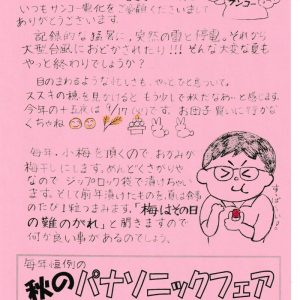 いつもサンコー電化をご愛顧くださいまして
ありがとうございます。
サンコー
記録的な猛暑に、突然の雷と停電、それから
大型台風におどかされたり!!! そんな大変な夏も
やっと終わりでしょうか?
目のまわるような忙しさも、やっとひと息ついて。
ススキの穂を見かけるともう少しで秋だなあ〜と感じます。
今年の十五夜は 9/17(火)です。お団子買いに行かなくちゃね
毎年、小梅を頂くので おかみが
梅干しにします。めんどくさがりや
なので ジップロック袋で漬けちゃい
ます。そして前年漬けたものを、夏は毎日
のたび1粒つまみます。「梅はその日
の難のがれ」と聞きますので
何か良い事があるのでしょう。
すっぱーい
毎年恒例の
秋のパナソニックフェア